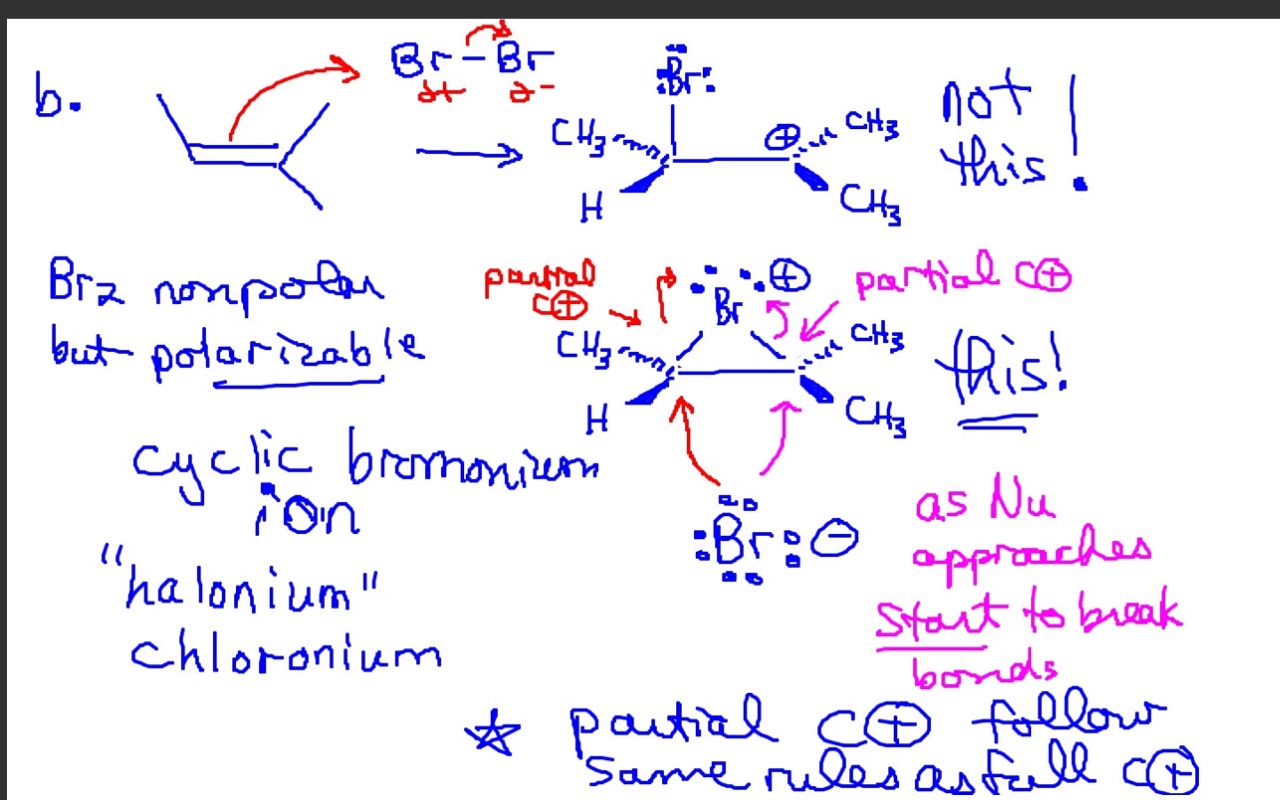 b.
Br-Br
δ+ δ-
:Br:
CH3 ⊕ CH3
H CH3
not
this!
Br2 nonpolar
but polarizable
partial
C⊕
:Br: ⊕
partial C⊕
CH3 CH3
H CH3
this!
cyclic bromonium
ion
"halonium"
chloronium
:Br: ⊖
as Nu
approaches
start to break
bonds
☆ partial C⊕ follow
same rules as full C⊕